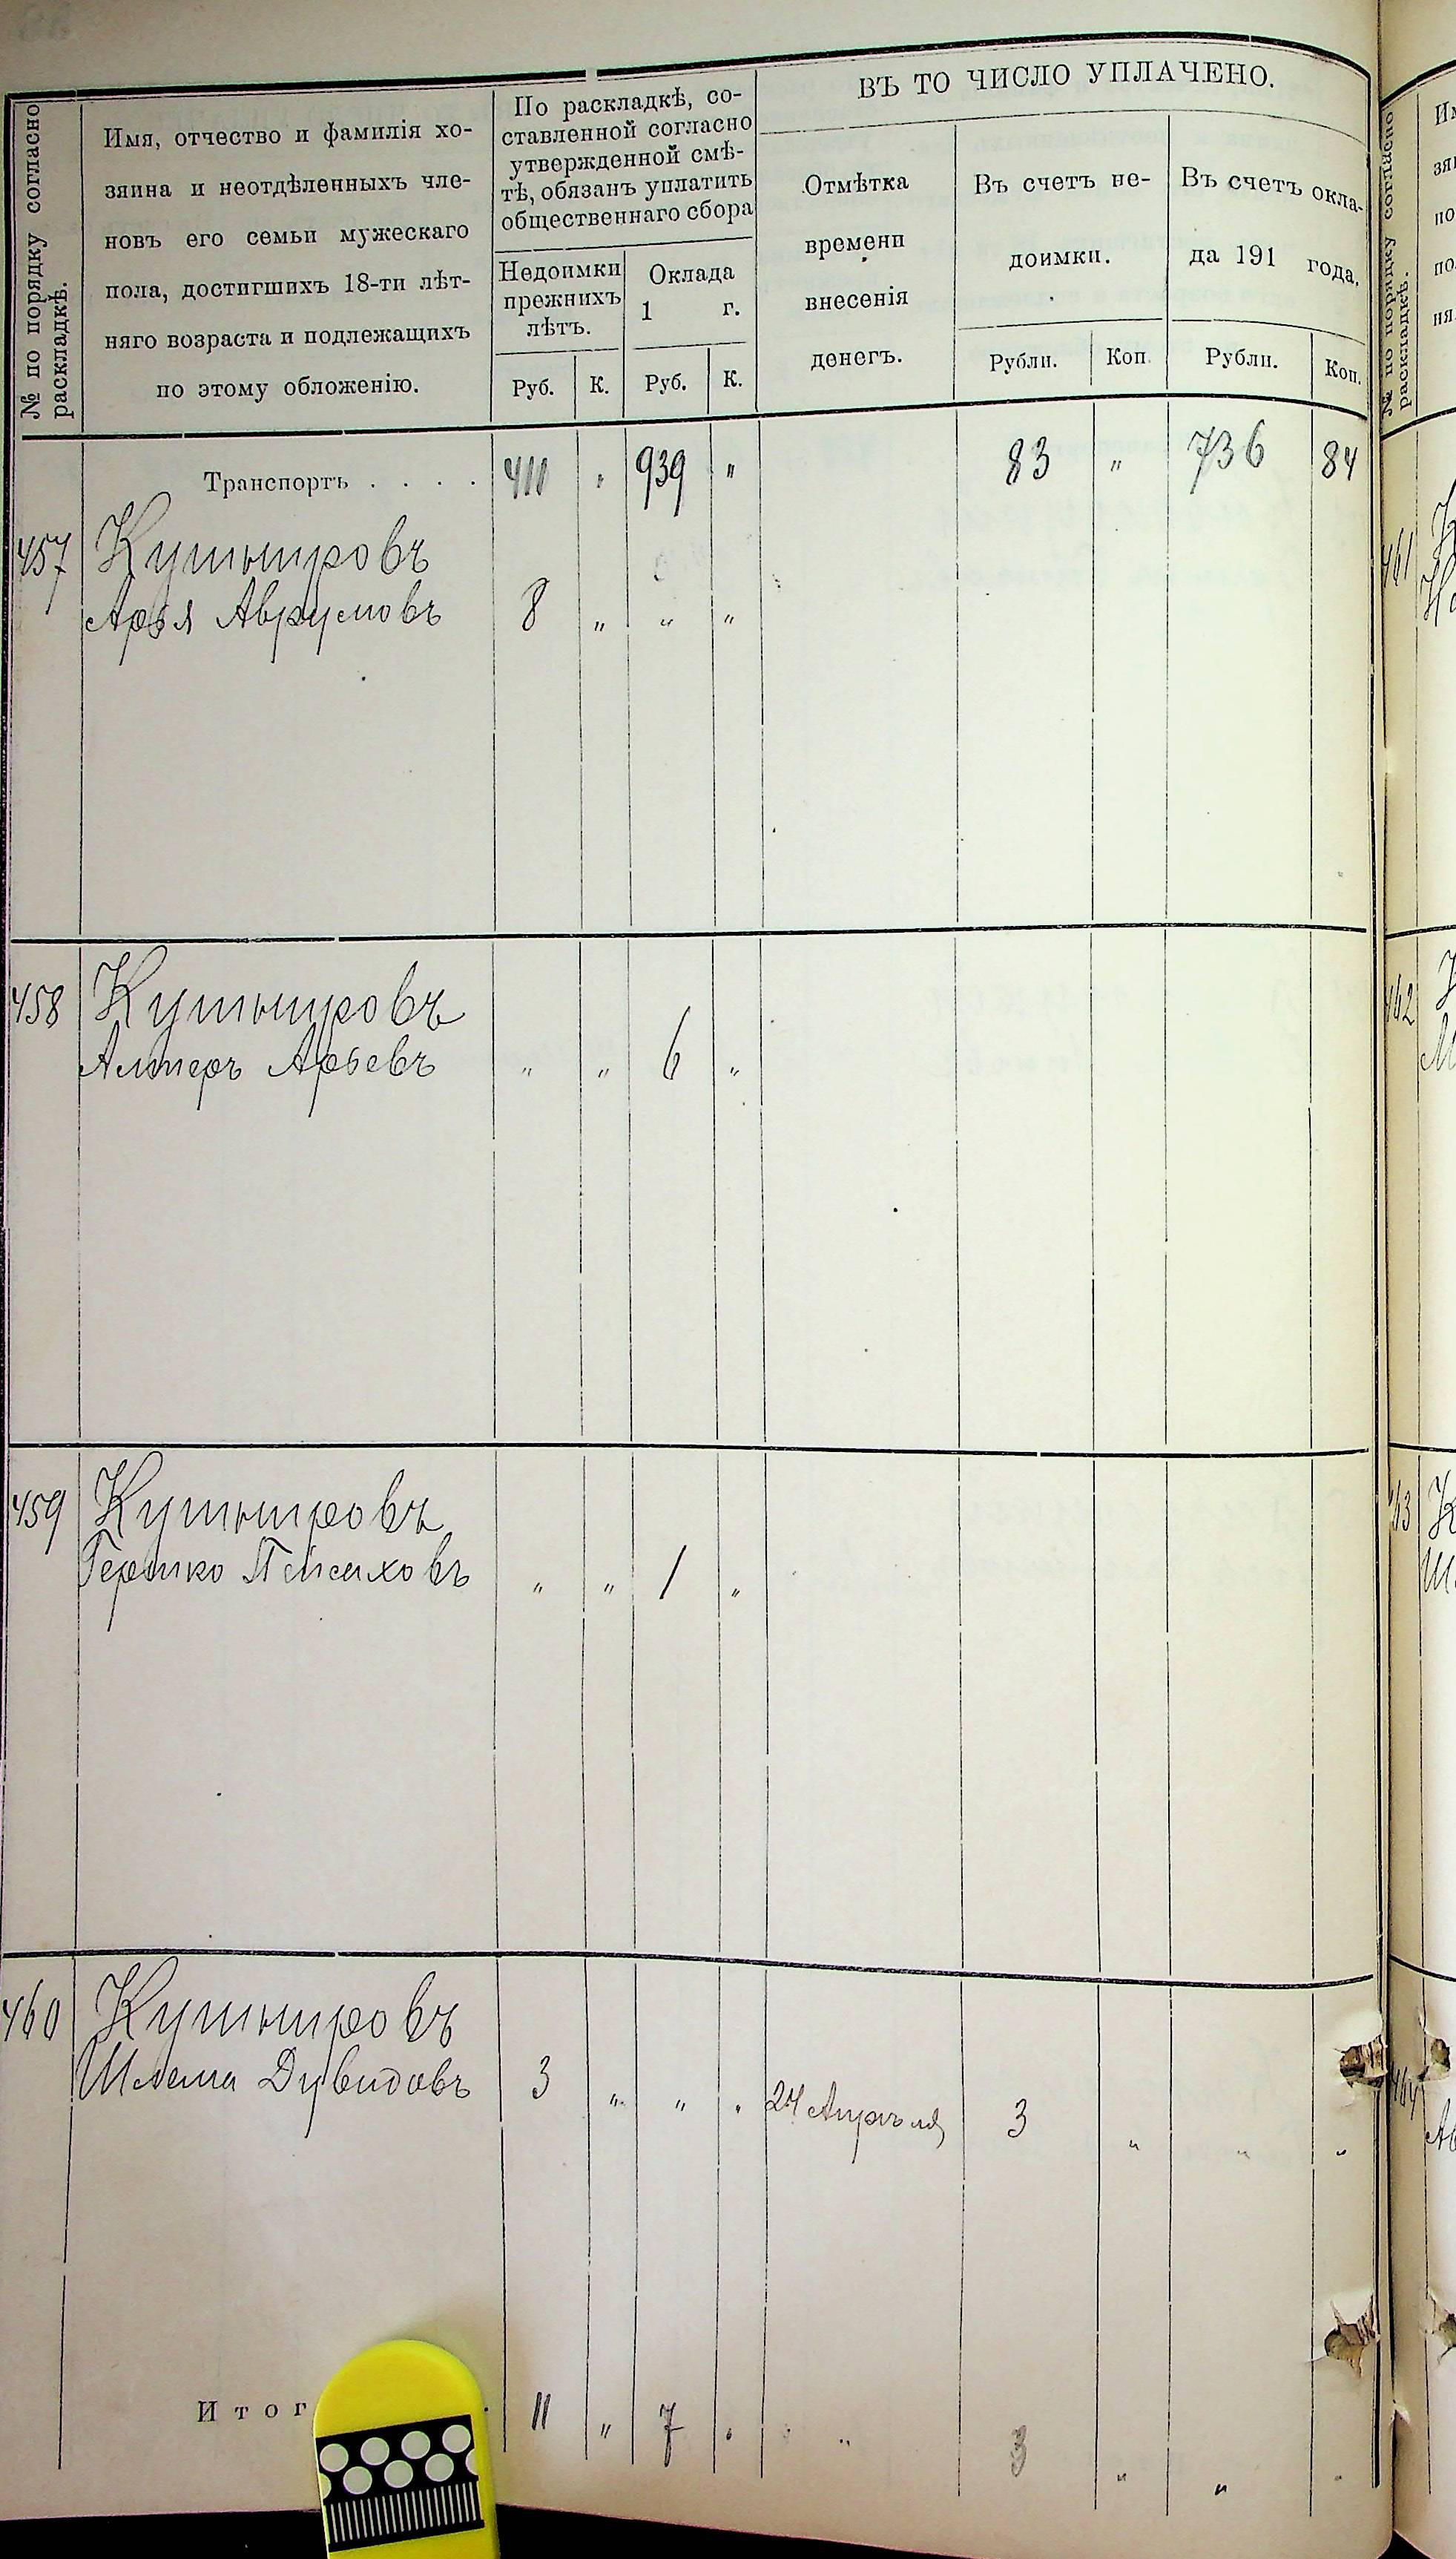 № по порядку согласно
раскладкѣ.
Имя, отчество и фамилія хо-
зяина и неотдѣленныхъ чле-
новъ его семьи мужескаго
пола, достигшихъ 18-ти лѣт-
няго возраста и подлежащихъ
по этому обложенію.
По раскладкѣ, со-
ставленной согласно
утвержденной смѣ-
тѣ, обязанъ уплатить
общественнаго сбора
Недоимки
прежнихъ
лѣтъ.
Руб. К.
Оклада
1 г.
Руб. К.
ВЪ ТО ЧИСЛО УПЛАЧЕНО.
Отмѣтка
времени
внесенія
денегъ.
Въ счетъ не-
доимки.
Рубли. Коп.
Въ счетъ окла-
да 191 года.
Рубли. Коп.
Транспортъ . . . . 411 " 939 " 83 " 736 84
457 Кушнировъ
Арья Аврумовъ 8 " " "
458 Кушнировъ
Алтеръ Арьевъ " " 6 "
459 Кушнировъ
Гершко Пейсаховъ " " 1 "
460 Кушнировъ
Шлема Дувидовъ 3 " " " 24 Апрѣля 3 " " "
Итог 11 " 7 " " 3 " " "